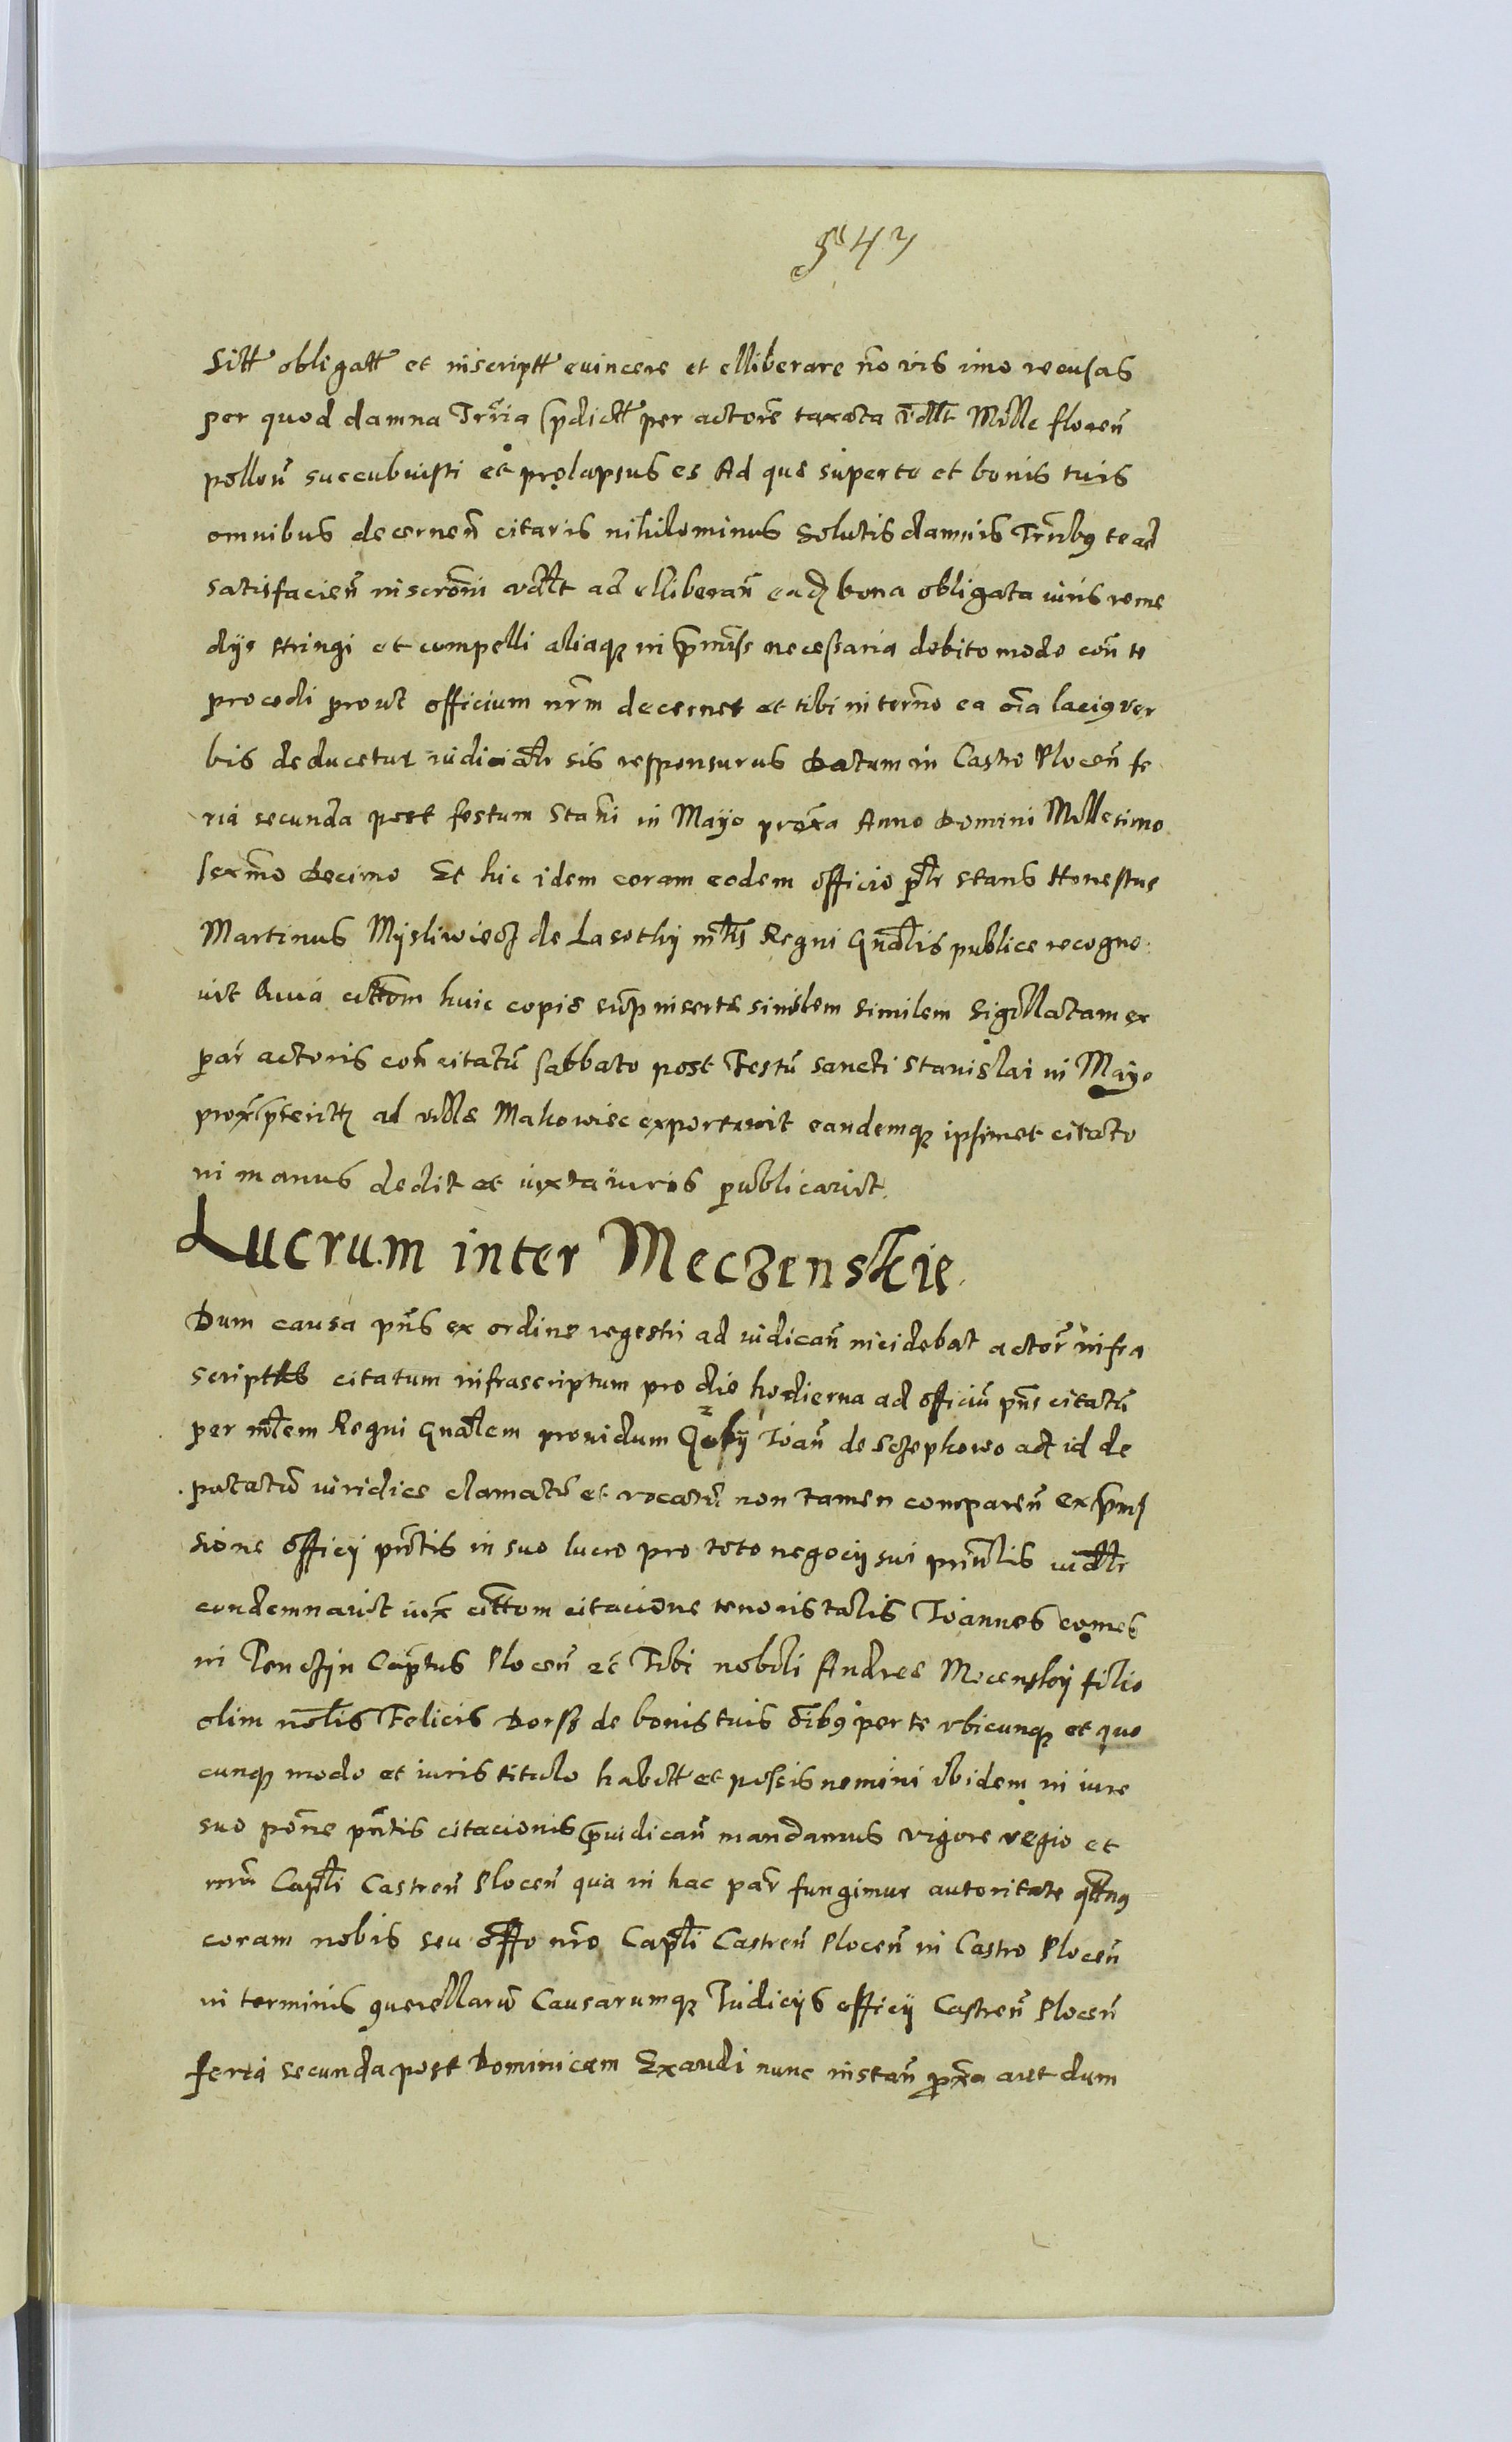 547
Sitt obligatt et inscriptt evincere et elliberare no vis imo recusas
per quod damna Trria spdictt per actore taxata vdlt Mille floren
pollon succubuisti et prolapsus es Ad que super te et bonis tuis
omnibus decernen citaris nihilominus Solutis damnis Trribus te ad
satisfacien inscroni vdlt ad elliberan eadem bona obligata iuris reme
dys stringi et compelli aliaque in prmiss necessaria debito modo con te
procedi prout officium nrm decernet et tibi in termo ea oia lacius ver
bis deducetur iudicialr sis responsurus Datum in Castro Plocen fe
ria secunda post festum Stani in Mayo proxa Anno Domini Millesimo
sexmo Decimo Et hic idem coram eodem officio plr stans Honestus
Martinus Mysliwiecz de Lasothy mlis Regni Gnalis publice recogno
vit Quia cittom huic copie sup inserte similem Sigillatam ex
par actoris con citatu sabbato post Festu sancti Stanislai in Mayo
prox pteritt ad villa Makowiec exportavit eandemque ipsimet citato
in manus dedit et iuxta iuris publicavit.
Lucrum inter Meczenskie.
Dum causa pns ex ordine regestri ad iudican incidebat actor infra
scriptus citatum infrascriptum pro die hodierna ad officiu pns citatu
per mlem Regni Gnalem providum Ioan de Sczepkowo ad id de
putatu iuridice clamatu et vocatu non tamen comparen ex prmis
sione officy pntis in suo lucro pro toto negocy sui prinlis iudlr
condemnavit iux cittom citacione tenoris talis Ioannes comes
in Tenczyn Captus Plocen etc Tibi nobili Andree Mecensky filio
olim nolis Felicis Dorsz de bonis tuis oibus per te ubicunque et quo
cunque modo et iuris titulo habitt et possis nemini ibidem in iure
suo pone pntis citacionis priudican mandamus vigore regio et
nro Capli Castren Plocen qua in hac par fungimur autoritate qttnus
coram nobis seu offo nro Capli Castren Plocen in Castro Plocen
in terminis querellaru Causarumque Iudicys officy Castren Plocen
feria secunda post Dominicam Exaudi nunc instan proxa aut dum